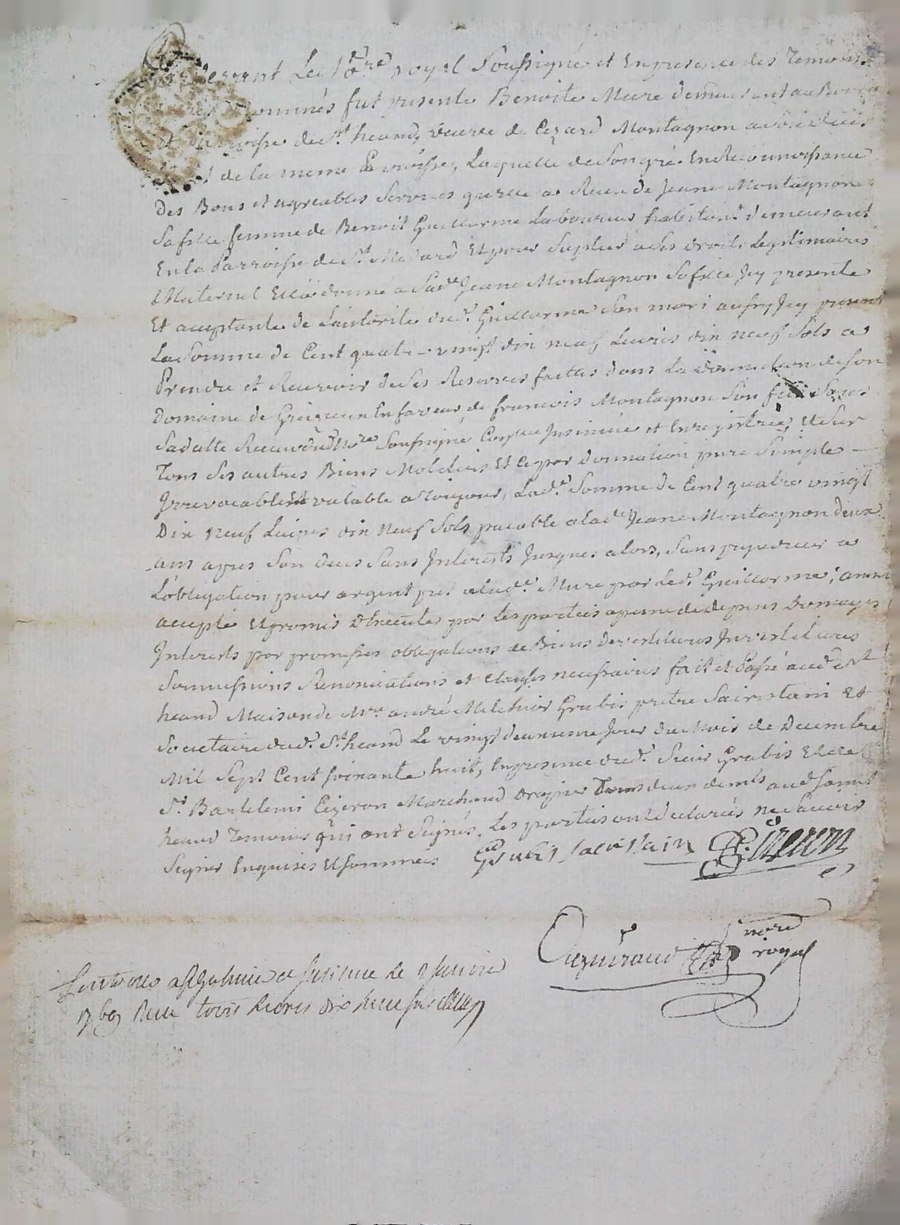 Le No.re royal Soussigné et En presence des Temoins
nommés fut presente Benoite Mure demeurant au Bourg
et parroisse de St. heand, veuve de Cezard Montagnon
de la meme Parroisse, Laquelle de Son gré En Reconnoissance
Des Bons et agreables Services quelle a Reçu de Jeane Montagnon
Sa fille femme de Benoit Guillarme Laboureur habitant demeurant
En la Parroisse de St. Medard Et pour Suplier a Ses droits Legitimaires
Maternel donne a Sad. Jeane Montagnon Sa fille Icy presente
Et acceptante de Lautorité dud. Guillarme Son mari aussy Icy present
La Somme de Cent quatre-vingt dix neuf Livres dix neuf Sols a
Prendre et Recevoir de Ses Reserves faittes dans La Donnation de Son
Domaine de En faveur de francois Montagnon Son fils
Sadatte Reçue dud. No.re Soussigné Insinuée et Enregistrée, Et Sur
Tous Ses autres Biens Et ce par donnation pure Simple
Irrevocable Et valable a toujours, Lad. Somme de Cent quatre vingt
Dix neuf Livres dix neuf Sols payable a lad. Jeane Montagnon deux
ans apres Son deces Sans Interests Jusques alors, Sans prejudicier a
L'obligation pour argent a lad. Mure par led. Guillarme; ainsi
accepté Et promis D'Executer par les parties a peine de Depens Domages
Interests par promesses obligations de Biens
Soumissions Renonciations et Clauses necessaires fait et Passé aud. St.
heand Maison de Mre. andré Melchior Grubis pretre Sacristain Et
Societaire dud. St. heand Le vingt deuxieme Jour du Mois de Decembre
Mil Sept Cent Soixante huit, En presence dud. Sieur Grubis Et de
Sr. Bartelemi Ezeron Marchand aud. Saint
heand Temoins qui ont Signés, Les parties ont declarées ne Scavoir
Signer Enquises Et Sommées Grubis Sacristain Ezeron
nore
royal
Controllé a St Galmier et Insinué le 9 Janvier
1769 Reçu trois Livres dix neuf sols